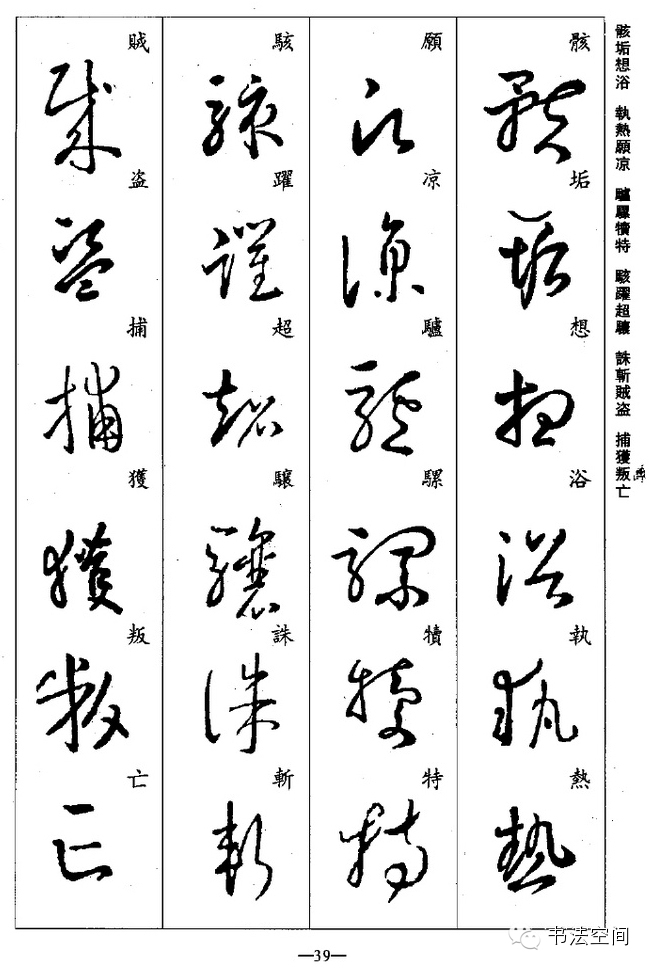 骸垢想浴　執熱願凉　驢騾犢特　駭躍超驤　誅斬賊盗　捕獲叛亡
骸垢想浴執熱
願凉驢騾犢特
駭躍超驤誅斬
賊盗捕獲叛亡
—39—
书法空间